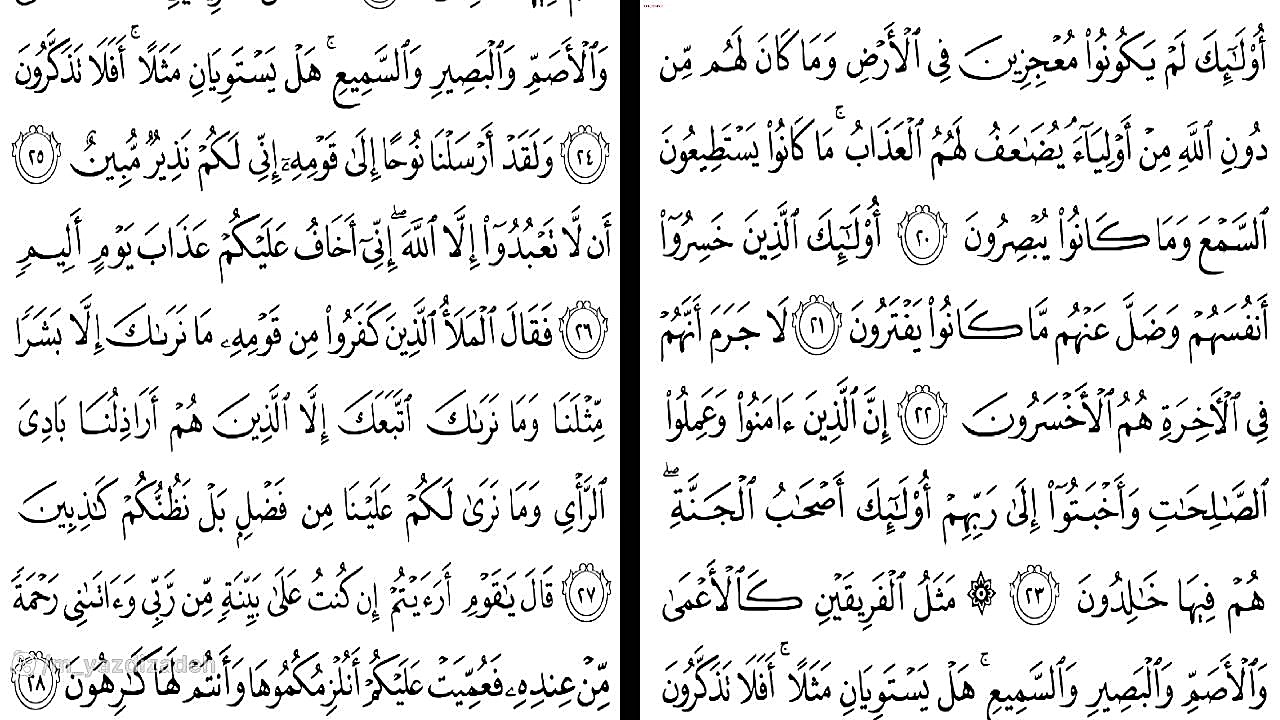 أُو۟لَـٰٓئِكَ لَمْ يَكُونُوا۟ مُعْجِزِينَ فِى ٱلْأَرْضِ وَمَا كَانَ لَهُم مِّن
دُونِ ٱللَّهِ مِنْ أَوْلِيَآءَ ۘ يُضَـٰعَفُ لَهُمُ ٱلْعَذَابُ ۚ مَا كَانُوا۟ يَسْتَطِيعُونَ
ٱلسَّمْعَ وَمَا كَانُوا۟ يُبْصِرُونَ ٢٠ أُو۟لَـٰٓئِكَ ٱلَّذِينَ خَسِرُوٓا۟
أَنفُسَهُمْ وَضَلَّ عَنْهُم مَّا كَانُوا۟ يَفْتَرُونَ ٢١ لَا جَرَمَ أَنَّهُمْ
فِى ٱلْـَٔاخِرَةِ هُمُ ٱلْأَخْسَرُونَ ٢٢ إِنَّ ٱلَّذِينَ ءَامَنُوا۟ وَعَمِلُوا۟
ٱلصَّـٰلِحَـٰتِ وَأَخْبَتُوٓا۟ إِلَىٰ رَبِّهِمْ أُو۟لَـٰٓئِكَ أَصْحَـٰبُ ٱلْجَنَّةِ ۖ
هُمْ فِيهَا خَـٰلِدُونَ ٢٣ ۞ مَثَلُ ٱلْفَرِيقَيْنِ كَٱلْأَعْمَىٰ
وَٱلْأَصَمِّ وَٱلْبَصِيرِ وَٱلسَّمِيعِ ۚ هَلْ يَسْتَوِيَانِ مَثَلًا ۚ أَفَلَا تَذَكَّرُونَ
وَٱلْأَصَمِّ وَٱلْبَصِيرِ وَٱلسَّمِيعِ ۚ هَلْ يَسْتَوِيَانِ مَثَلًا ۚ أَفَلَا تَذَكَّرُونَ
٢٤ وَلَقَدْ أَرْسَلْنَا نُوحًا إِلَىٰ قَوْمِهِۦٓ إِنِّى لَكُمْ نَذِيرٌ مُّبِينٌ ٢٥
أَن لَّا تَعْبُدُوٓا۟ إِلَّا ٱللَّهَ ۖ إِنِّىٓ أَخَافُ عَلَيْكُمْ عَذَابَ يَوْمٍ أَلِيمٍ
٢٦ فَقَالَ ٱلْمَلَأُ ٱلَّذِينَ كَفَرُوا۟ مِن قَوْمِهِۦ مَا نَرَىٰكَ إِلَّا بَشَرًا
مِّثْلَنَا وَمَا نَرَىٰكَ ٱتَّبَعَكَ إِلَّا ٱلَّذِينَ هُمْ أَرَاذِلُنَا بَادِىَ
ٱلرَّأْىِ وَمَا نَرَىٰ لَكُمْ عَلَيْنَا مِن فَضْلٍۭ بَلْ نَظُنُّكُمْ كَـٰذِبِينَ
٢٧ قَالَ يَـٰقَوْمِ أَرَءَيْتُمْ إِن كُنتُ عَلَىٰ بَيِّنَةٍ مِّن رَّبِّى وَءَاتَىٰنِى رَحْمَةً
مِّنْ عِندِهِۦ فَعُمِّيَتْ عَلَيْكُمْ أَنُلْزِمُكُمُوهَا وَأَنتُمْ لَهَا كَـٰرِهُونَ ٢٨
/m_yazdizadeh